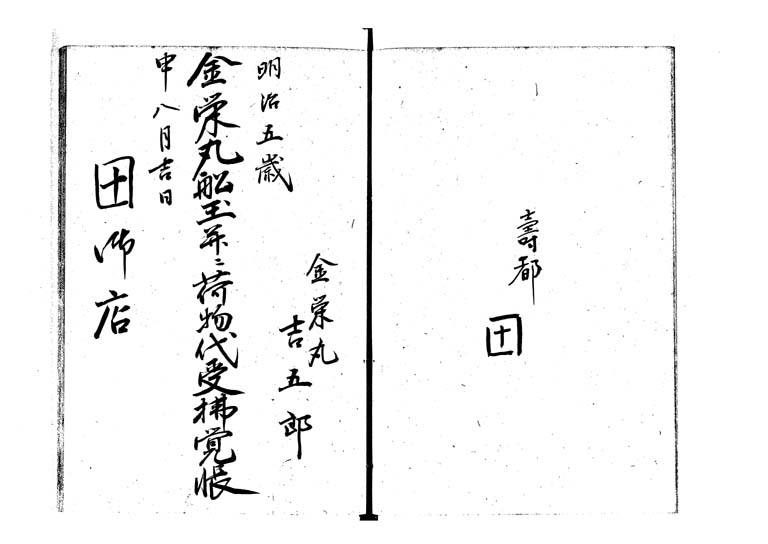 壽都
田
金栄丸
吉五郎
明治五歳
金栄丸船玉并ニ荷物代受拂覚帳
申八月吉日
田 御店